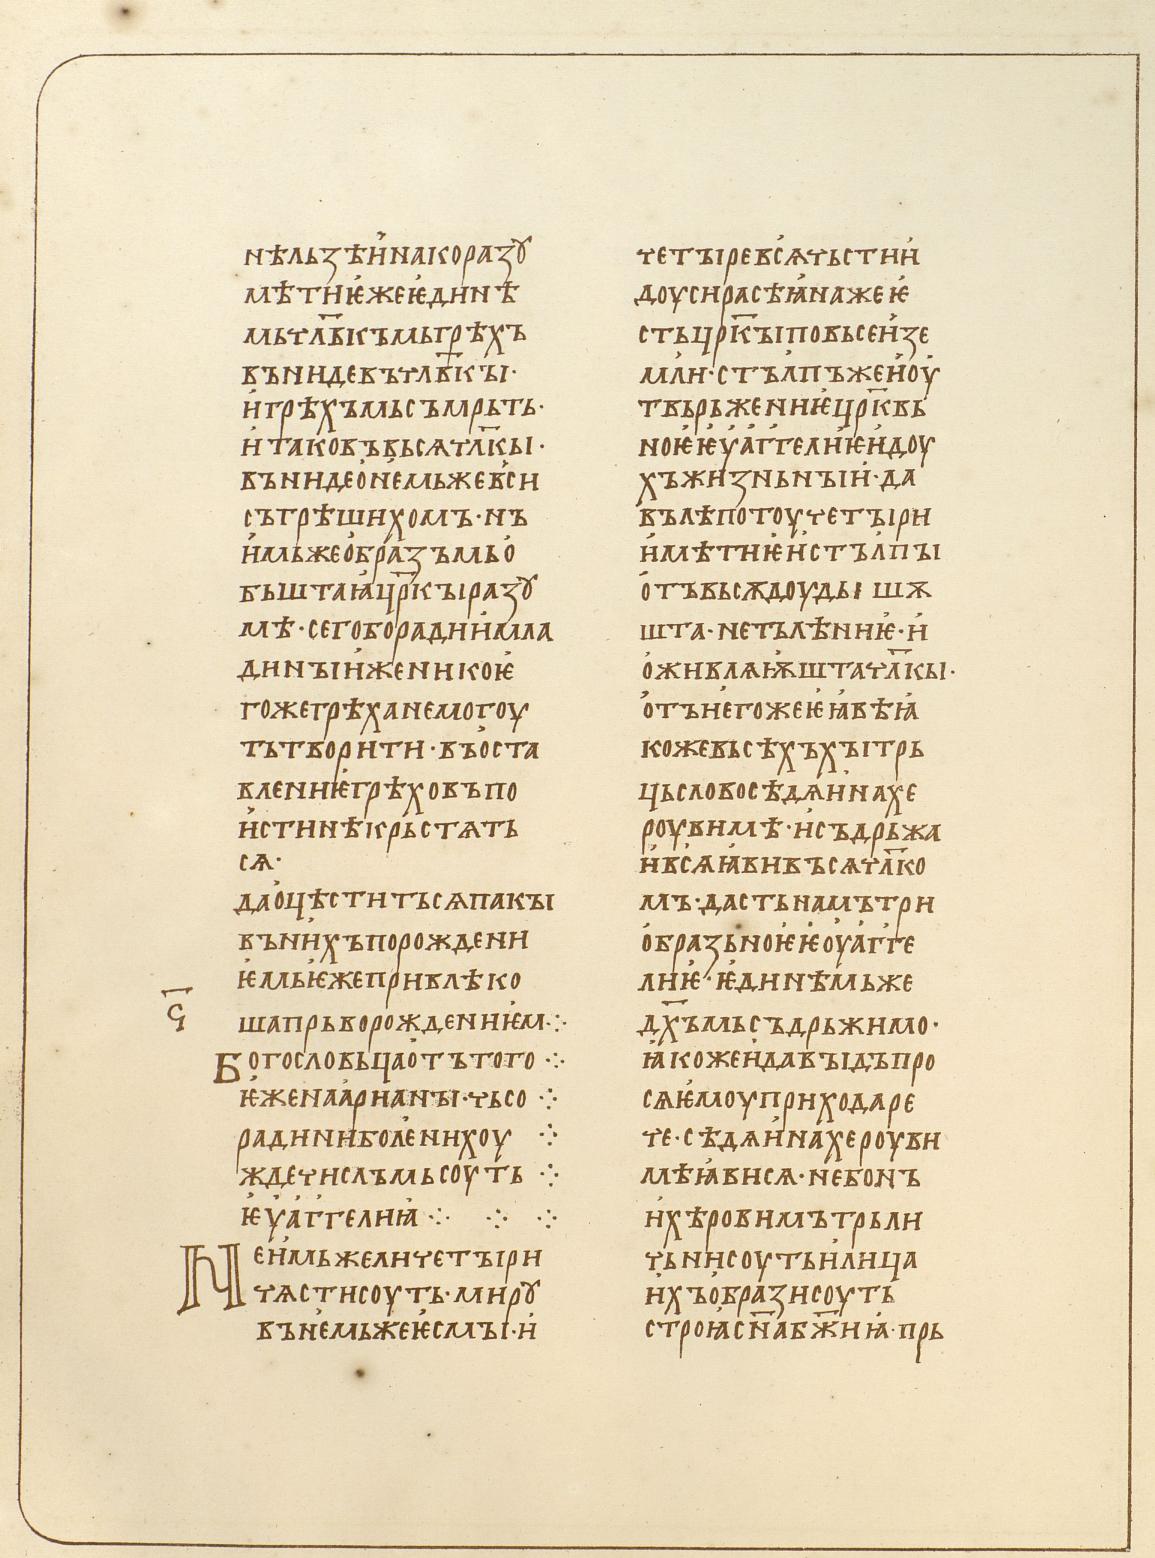 нѣльзѣи҆наꙗкоразꙋ
мѣтиѥ҆жеѥ҆динѣ
мьчл҃вкъмьгрѣхъ
въни́девъчлв҃кꙑ·
и҆грѣхъмьсъмрьть·
и҆таковъвьсѧчл҃кꙑ·
въни́деѻ҆не́мьжевс҆и
съгрѣшихомъ·нъ
и҆мьжеѻ҆бразъмьѻ҆
бьштаꙗ҆цр҃кꙑразꙋ
мѣ·сегоборадии҆мла
динꙑи҆женикоѥ҆
гожегрѣханемогоу
тътворити·въѻ҆ста
влениѥ҆грѣховъпо
и҆стинѣкрьстѧть
сѧ·
даѻ҆цѣститьсѧпакꙑ
въни҆хъпорождени
ѥ҆мьѥ҆жепривлѣко
шапрьворождениѥ҆м⁘
ѕ҃
Богословьцаѻ҆тътого⁘
ѥ҆женаа҆рианꙑ·чьсо⁘
радининиболе́нихоу⁘
ждечисльмьсоуть⁘
ѥ҆у҆а҆г҆г҆елиꙗ҆⁘ ⁘ ⁘
Неи҆мьжеличетꙑри
чѧстисоуть·мирꙋ
въне́мьжеѥ҆смꙑ·и҆
четꙑревс҆ѧчьстнии҆
доусирасѣꙗ҆нажеѥ҆
стьцр҃кꙑповьсеи҆зе
мл҆и·стъл҆пъжеи҆оу҆
твьрьжениѥ҆цр҃квь
ноѥ҆ѥ҆у҆а҆г҆г҆елиѥ҆и҆доу
хъжизньнꙑи҆·да
вълѣпотоучетꙑри
и҆мѣтиѥ҆и҆стъл҆пꙑ
ѻ҆тъвьсѫдоудꙑшѫ
шта·нетълѣниѥ҆·и҆
ѻ҆живлꙗѭ҆штачл҃кꙑ·
ѻ҆тъне́гожеѥ҆ꙗ҆вѣꙗ҆
кожевьсѣхъхꙑтрь
цьсловосѣдѧи҆нахе
роувимѣ·и҆съдрьжа
и҆вс҆ѧꙗ҆вивъсѧчл҃ко
мъ·дастьнамътри
ѻ҆бразьноѥ҆ѥ҆оу҆а҆г҆г҆е
лиѥ҆·ѥ҆динѣмьже
дх҃ъмьсъдрьжимо·
ꙗ҆кожеи҆давꙑдъпро
сѧѥ҆моуприходаре
че·сѣдѧи҆нахероуви
мѣꙗ҆висѧ·небонъ
и҆хѣровимътрьли
чьнисоутьи҆лица
и҆хъѻ҆бразисоуть
строꙗ҆сн҃абж҃иꙗ҆·прь